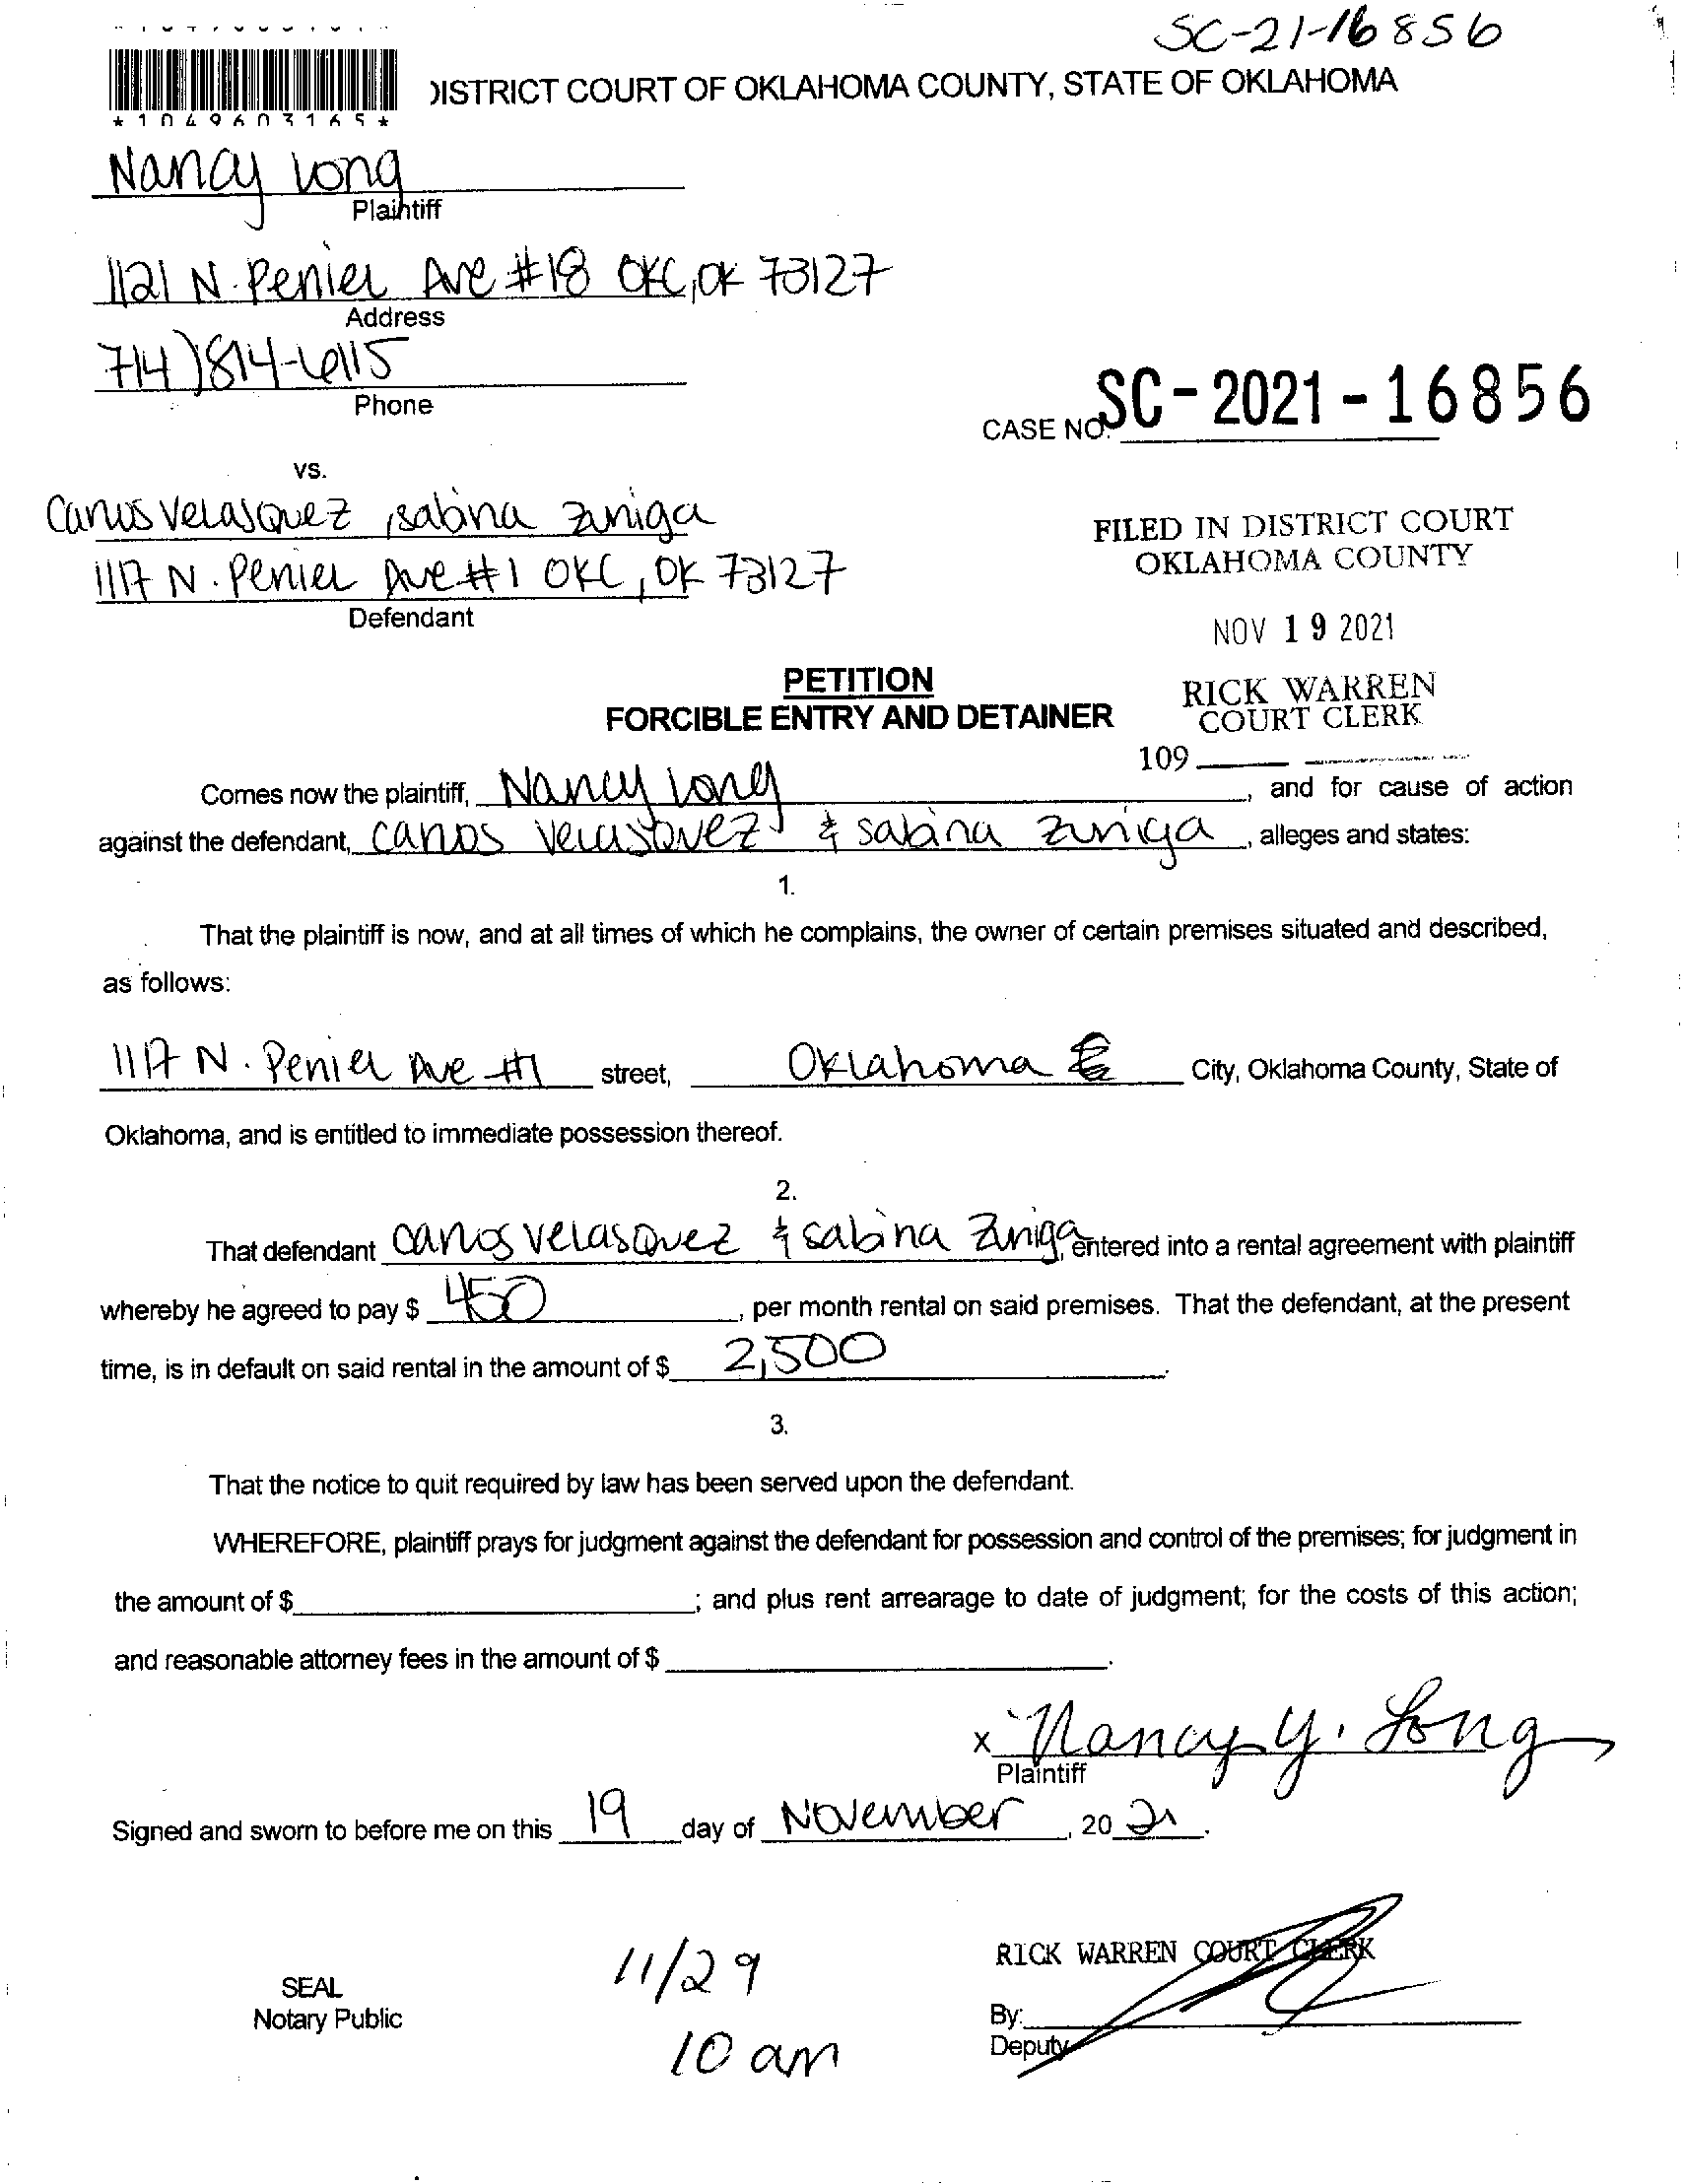 SC-21-16856
DISTRICT COURT OF OKLAHOMA COUNTY, STATE OF OKLAHOMA
*1049603165*
Nancy Long
Plaintiff
1121 N. Peniel Ave #18 OKC, OK 73127
Address
714) 814-6115
Phone
CASE NO. SC-2021-16856
vs.
Carlos Velasquez, Sabina Zuniga
1117 N. Peniel Ave #1 OKC, OK 73127
Defendant
FILED IN DISTRICT COURT
OKLAHOMA COUNTY
NOV 19 2021
RICK WARREN
COURT CLERK
109
PETITION
FORCIBLE ENTRY AND DETAINER
Comes now the plaintiff, Nancy Long, and for cause of action
against the defendant, Carlos Velasquez & Sabina Zuniga, alleges and states:
1.
That the plaintiff is now, and at all times of which he complains, the owner of certain premises situated and described,
as follows:
1117 N. Peniel Ave #1 street, Oklahoma City, Oklahoma County, State of
Oklahoma, and is entitled to immediate possession thereof.
2.
That defendant Carlos Velasquez & Sabina Zuniga, entered into a rental agreement with plaintiff
whereby he agreed to pay $ 450, per month rental on said premises. That the defendant, at the present
time, is in default on said rental in the amount of $ 2,500.
3.
That the notice to quit required by law has been served upon the defendant.
WHEREFORE, plaintiff prays for judgment against the defendant for possession and control of the premises; for judgment in
the amount of $ ; and plus rent arrearage to date of judgment; for the costs of this action;
and reasonable attorney fees in the amount of $ .
x Nancy Y. Long
Plaintiff
Signed and sworn to before me on this 19 day of November, 20 21.
11/29
10 am
SEAL
Notary Public
RICK WARREN COURT CLERK
By:
Deputy